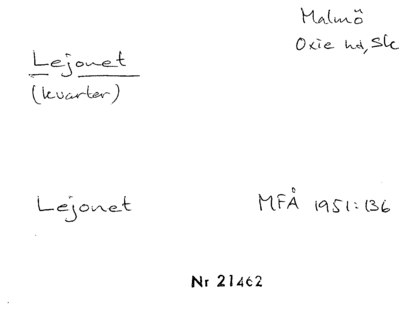 Malmö
Oxie hd, Sk
Lejonet
(kvarter)
Lejonet MFÅ 1951:136
Nr 21462